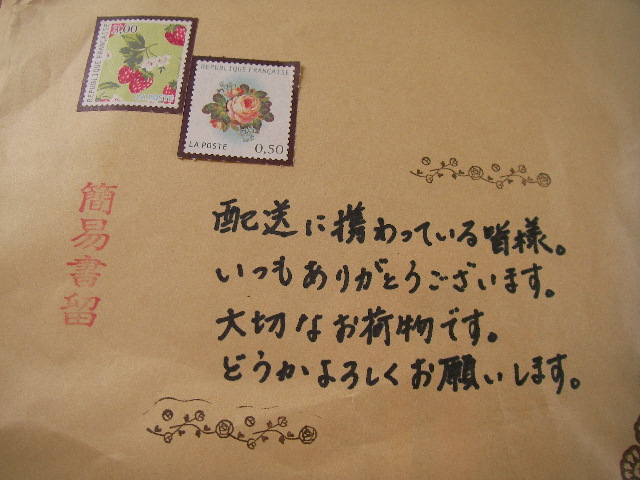 3.00
REPUBLIQUE FRANÇAISE
REPUBLIQUE FRANÇAISE
LA POSTE 0,50
簡易書留
配送に携わっている皆様。
いつもありがとうございます。
大切なお荷物です。
どうかよろしくお願いします。